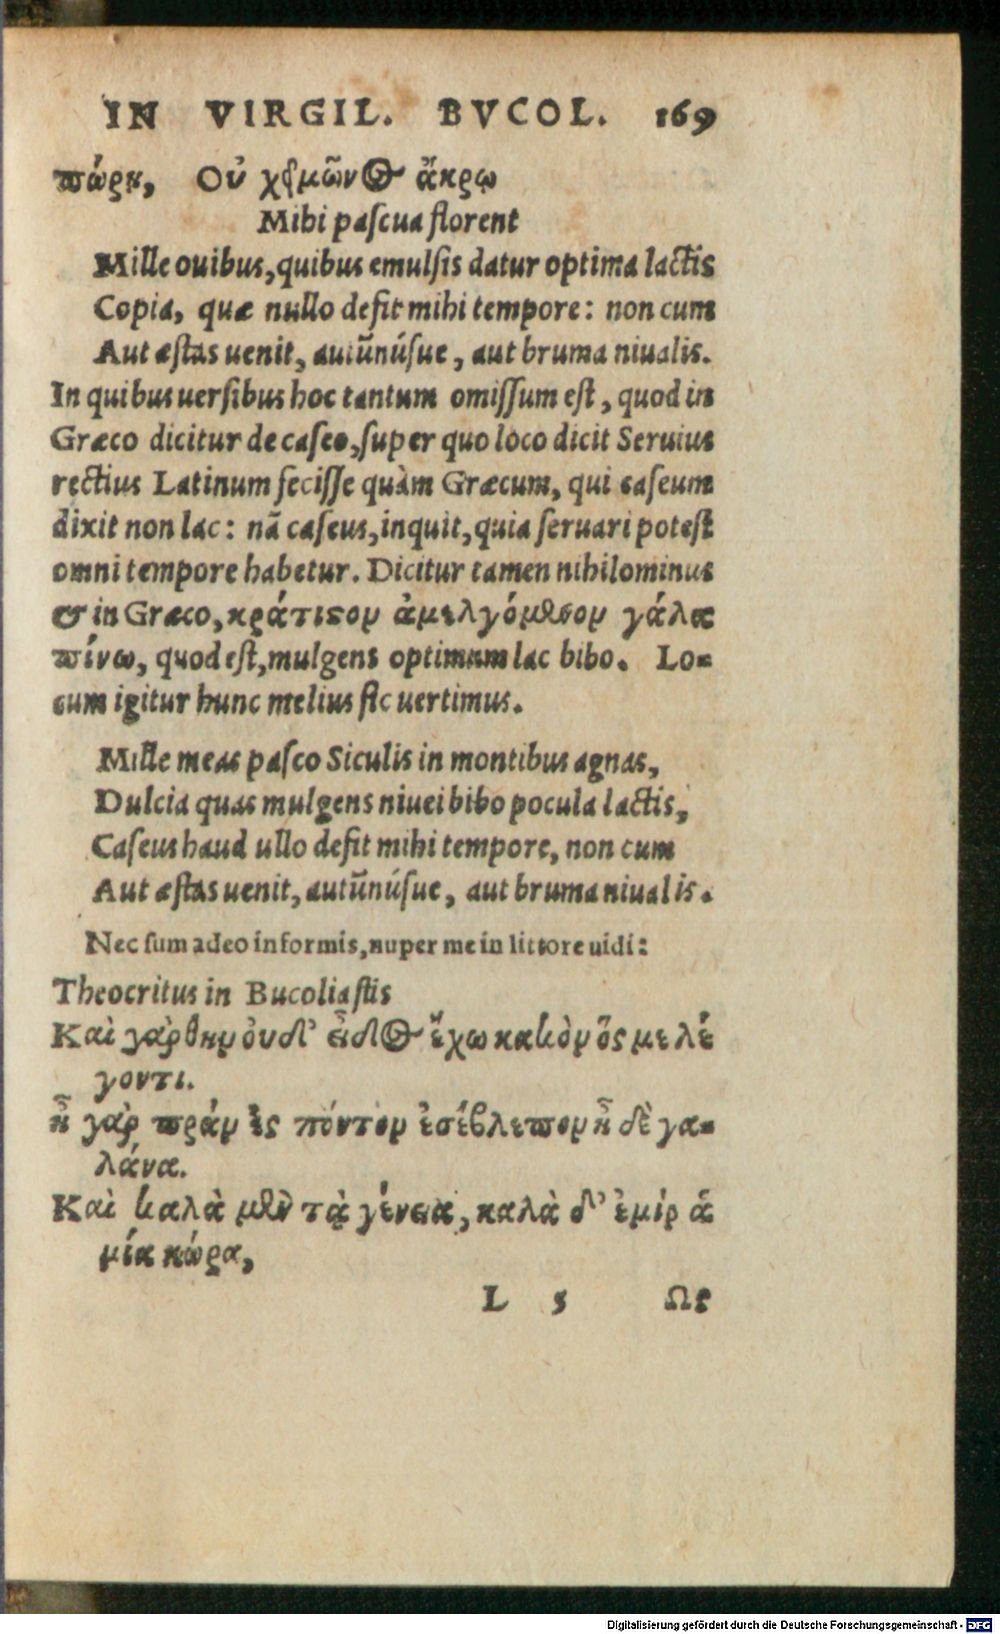 IN VIRGIL. BVCOL. 169
πώρȣ, Οὐ χειμῶνος ἄκρῳ
Mihi pascua florent
Mille ouibus, quibus emulsis datur optima lactis
Copia, quæ nullo defit mihi tempore: non cum
Aut æstas uenit, autũnúsue, aut bruma niualis.
In quibus uersibus hoc tantum omissum est, quod in
Græco dicitur de caseo, super quo loco dicit Seruius
rectius Latinum fecisse quàm Græcum, qui caseum
dixit non lac: nã caseus, inquit, quia seruari potest
omni tempore habetur. Dicitur tamen nihilominus
& in Græco, κράτιςον ἀμελγόμενον γάλα
πίνω, quod est, mulgens optimum lac bibo. Lo-
cum igitur hunc melius sic uertimus.
Mille meas pasco Siculis in montibus agnas,
Dulcia quas mulgens niuei bibo pocula lactis,
Caseus haud ullo defit mihi tempore, non cum
Aut æstas uenit, autũnúsue, aut bruma niualis.
Nec sum adeo informis, nuper me in littore uidi:
Theocritus in Bucoliastis
Καὶ γὰρ θην ὀυδ' εἶδος ἔχω κακὸν ὅς με λέ
γοντι.
ἦ γὰρ πρὰν ἐς πόντον ἐσέβλεπον ἦ δὲ γα-
λάνα.
Καὶ καλὰ μὲν τὰ γένεια, καλὰ δ' ἐμὶν ἁ
μία κώρα,
L 5 Ως
Digitalisierung gefördert durch die Deutsche Forschungsgemeinschaft - DFG